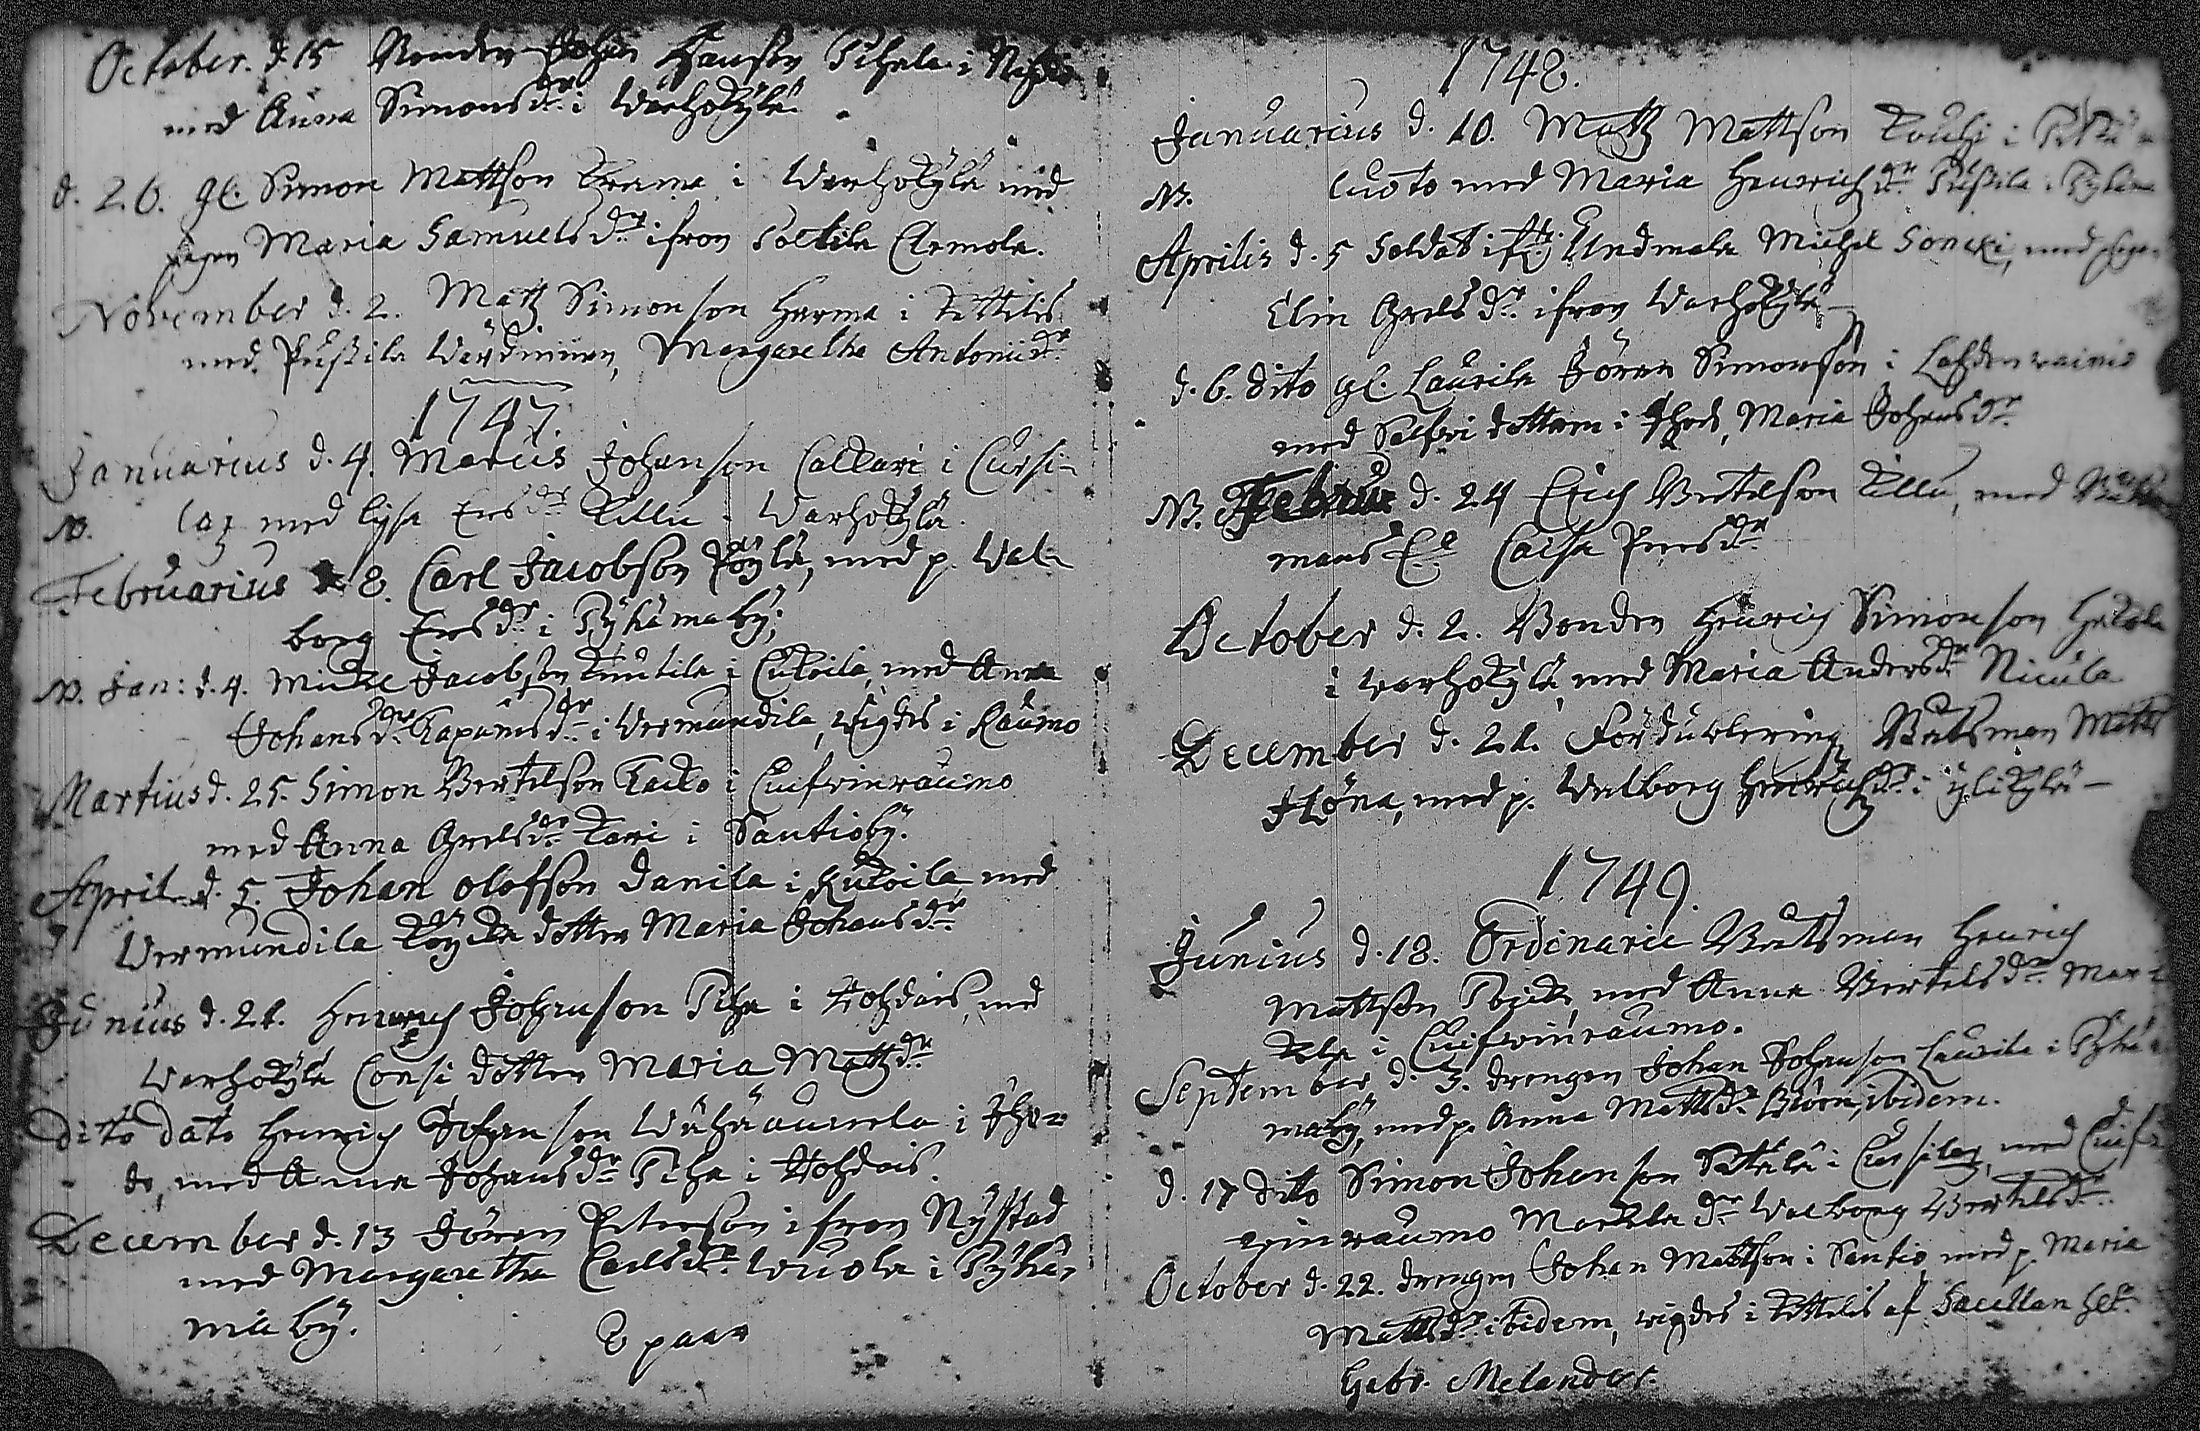 October. d. 15 Bonden Johan Hansson Pihala i
med Anna Simons dr. i Warhokylä
d. 26. gl. Simon Mattson Krama i Warhokylä med
pigan Maria Samuels dr ifron Soltila Armola.
November d. 2. Matz Simonson Harma i Kittilis
med Pussila Wärdinnen, Margaretha Antonii dr
1747.
Januarius d. 4. Marcus Johanson Callari i Cursi-
NB. lax med Lijsa Ers dr Killu i Warhokylä.
Februarius 8. Carl Jacobson Pöylä, med p. Wal-
borg Ers dr i Pyhämaby;
NB. Jan: d. 4. Michel Jacobson Knutila i Cukoila, med Anna
Johans dr i Wermundila, wigdes i Raumo
Martius d. 25. Simon Bertelson Kacko i Cuifwinraumo
med Anna Grels dr Kari i Santioby.
April. d. 5. Johan Olofson Danila i Kukoila med
Wermundila dotter Maria Johans dr
Junius d. 21. Henrich Johanson Piha i Kohdais, med
Warhokylä Consi dotter Maria Matts dr
Dito dato Henrich Johanson Wähäaumela i Iho-
de, med Anna Johans dr Piha i Kohdais.
December d. 13 Jören Peterson ifron Nystad
med Margaretha Carls dr Wuola i Pyhä-
mäby.
8 paar
1748.
Januarius d. 10. Matz Mattson Kouhi i
NB. luoto med Maria Henrichs dr Pussila i
Aprilis d. 5 Soldat Michel Soneki, med pigan
Elin Grels dr ifron Warhokylä
d. 6. dito gl. Laurila Jören Simonson i Lahdenwainio
med Salfwi dottern i Ihode, Maria Johans dr
NB. Februar d. 24 Erich Bertelson Killu, med
mans Ea Caisa Pers dr
October d. 2. Bonden Henrich Simonson
i Warhokylä, med Maria Anders dr Nicula
December d. 21. Fördublering Båtsman Matts
Höna, med p. Walborg Henrichs dr i ylikylä
1749.
Junius d. 18. Ordinarie Båtsman Henrich
Mattson med Anna Bertels dr Mar-
kela i Cuifwinraumo.
September d. 3. drengen Johan Johanson Laurila i Pyhä-
maby, med p. Anna Matts dr Biörn, ibidem.
d. 17 dito Simon Johanson Sättälä i Cursilax, med Cuif-
winraumo Markela dr Walborg Bertels dr
October d. 22. drengen Johan Mattson i Santio med p. Maria
Matts dr ibidem, wigdes i Kittilis af Sacellan
Gabr. Melander.